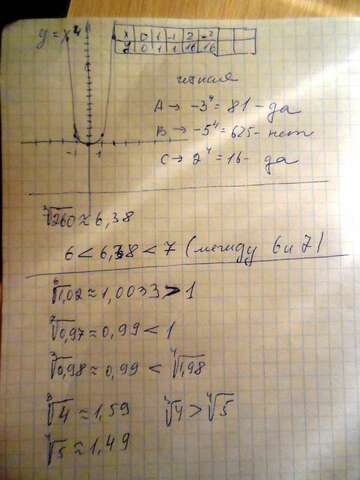 y=x⁴
x 0 1 -1 2 -2
y 0 1 1 16 16
четная
A → -3⁴ = 81 - да
B → -5⁴ = 625 - нет
C → 2⁴ = 16 - да
-1 1
³√260 ≈ 6,38
6 < 6,38 < 7 (между 6 и 7)
⁶√1,02 ≈ 1,0033 > 1
⁷√0,97 ≈ 0,99 < 1
³√0,98 ≈ 0,99 < ⁴√1,98
³√4 ≈ 1,59 ³√4 > ⁴√5
⁴√5 ≈ 1,49